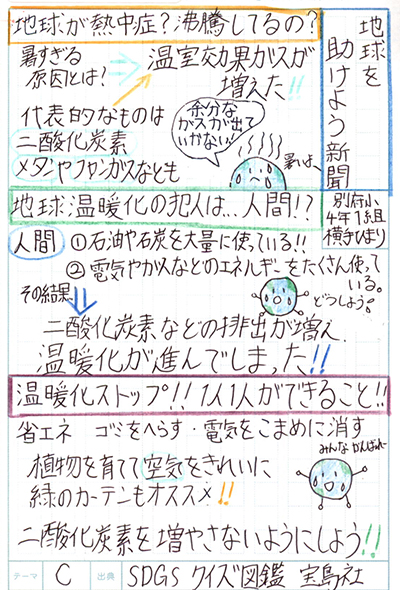 地球を
助けよう新聞
別府小
4年1組
横手ひまり
地球が熱中症？沸騰してるの？
暑すぎる
原因とは？
温室効果ガスが
増えた!!
代表的なものは
二酸化炭素
メタンやフロンガスなども
余分な
ガスが出て
いかない!
暑いよ、
地球温暖化の犯人は…人間!?
人間
①石油や石炭を大量に使っている!!
②電気やガスなどのエネルギーをたくさん使って
いる。
その結果
どうしよう。
二酸化炭素などの排出が増え、
温暖化が進んでしまった!!
温暖化ストップ!!1人1人ができること!!
省エネ ゴミをへらす・電気をこまめに消す
植物を育て空気をきれいに
緑のカーテンもオススメ!!
みんながんばれー
二酸化炭素を増やさないようにしよう!!
テーマ C 出典 SDGS クイズ図鑑 宝島社